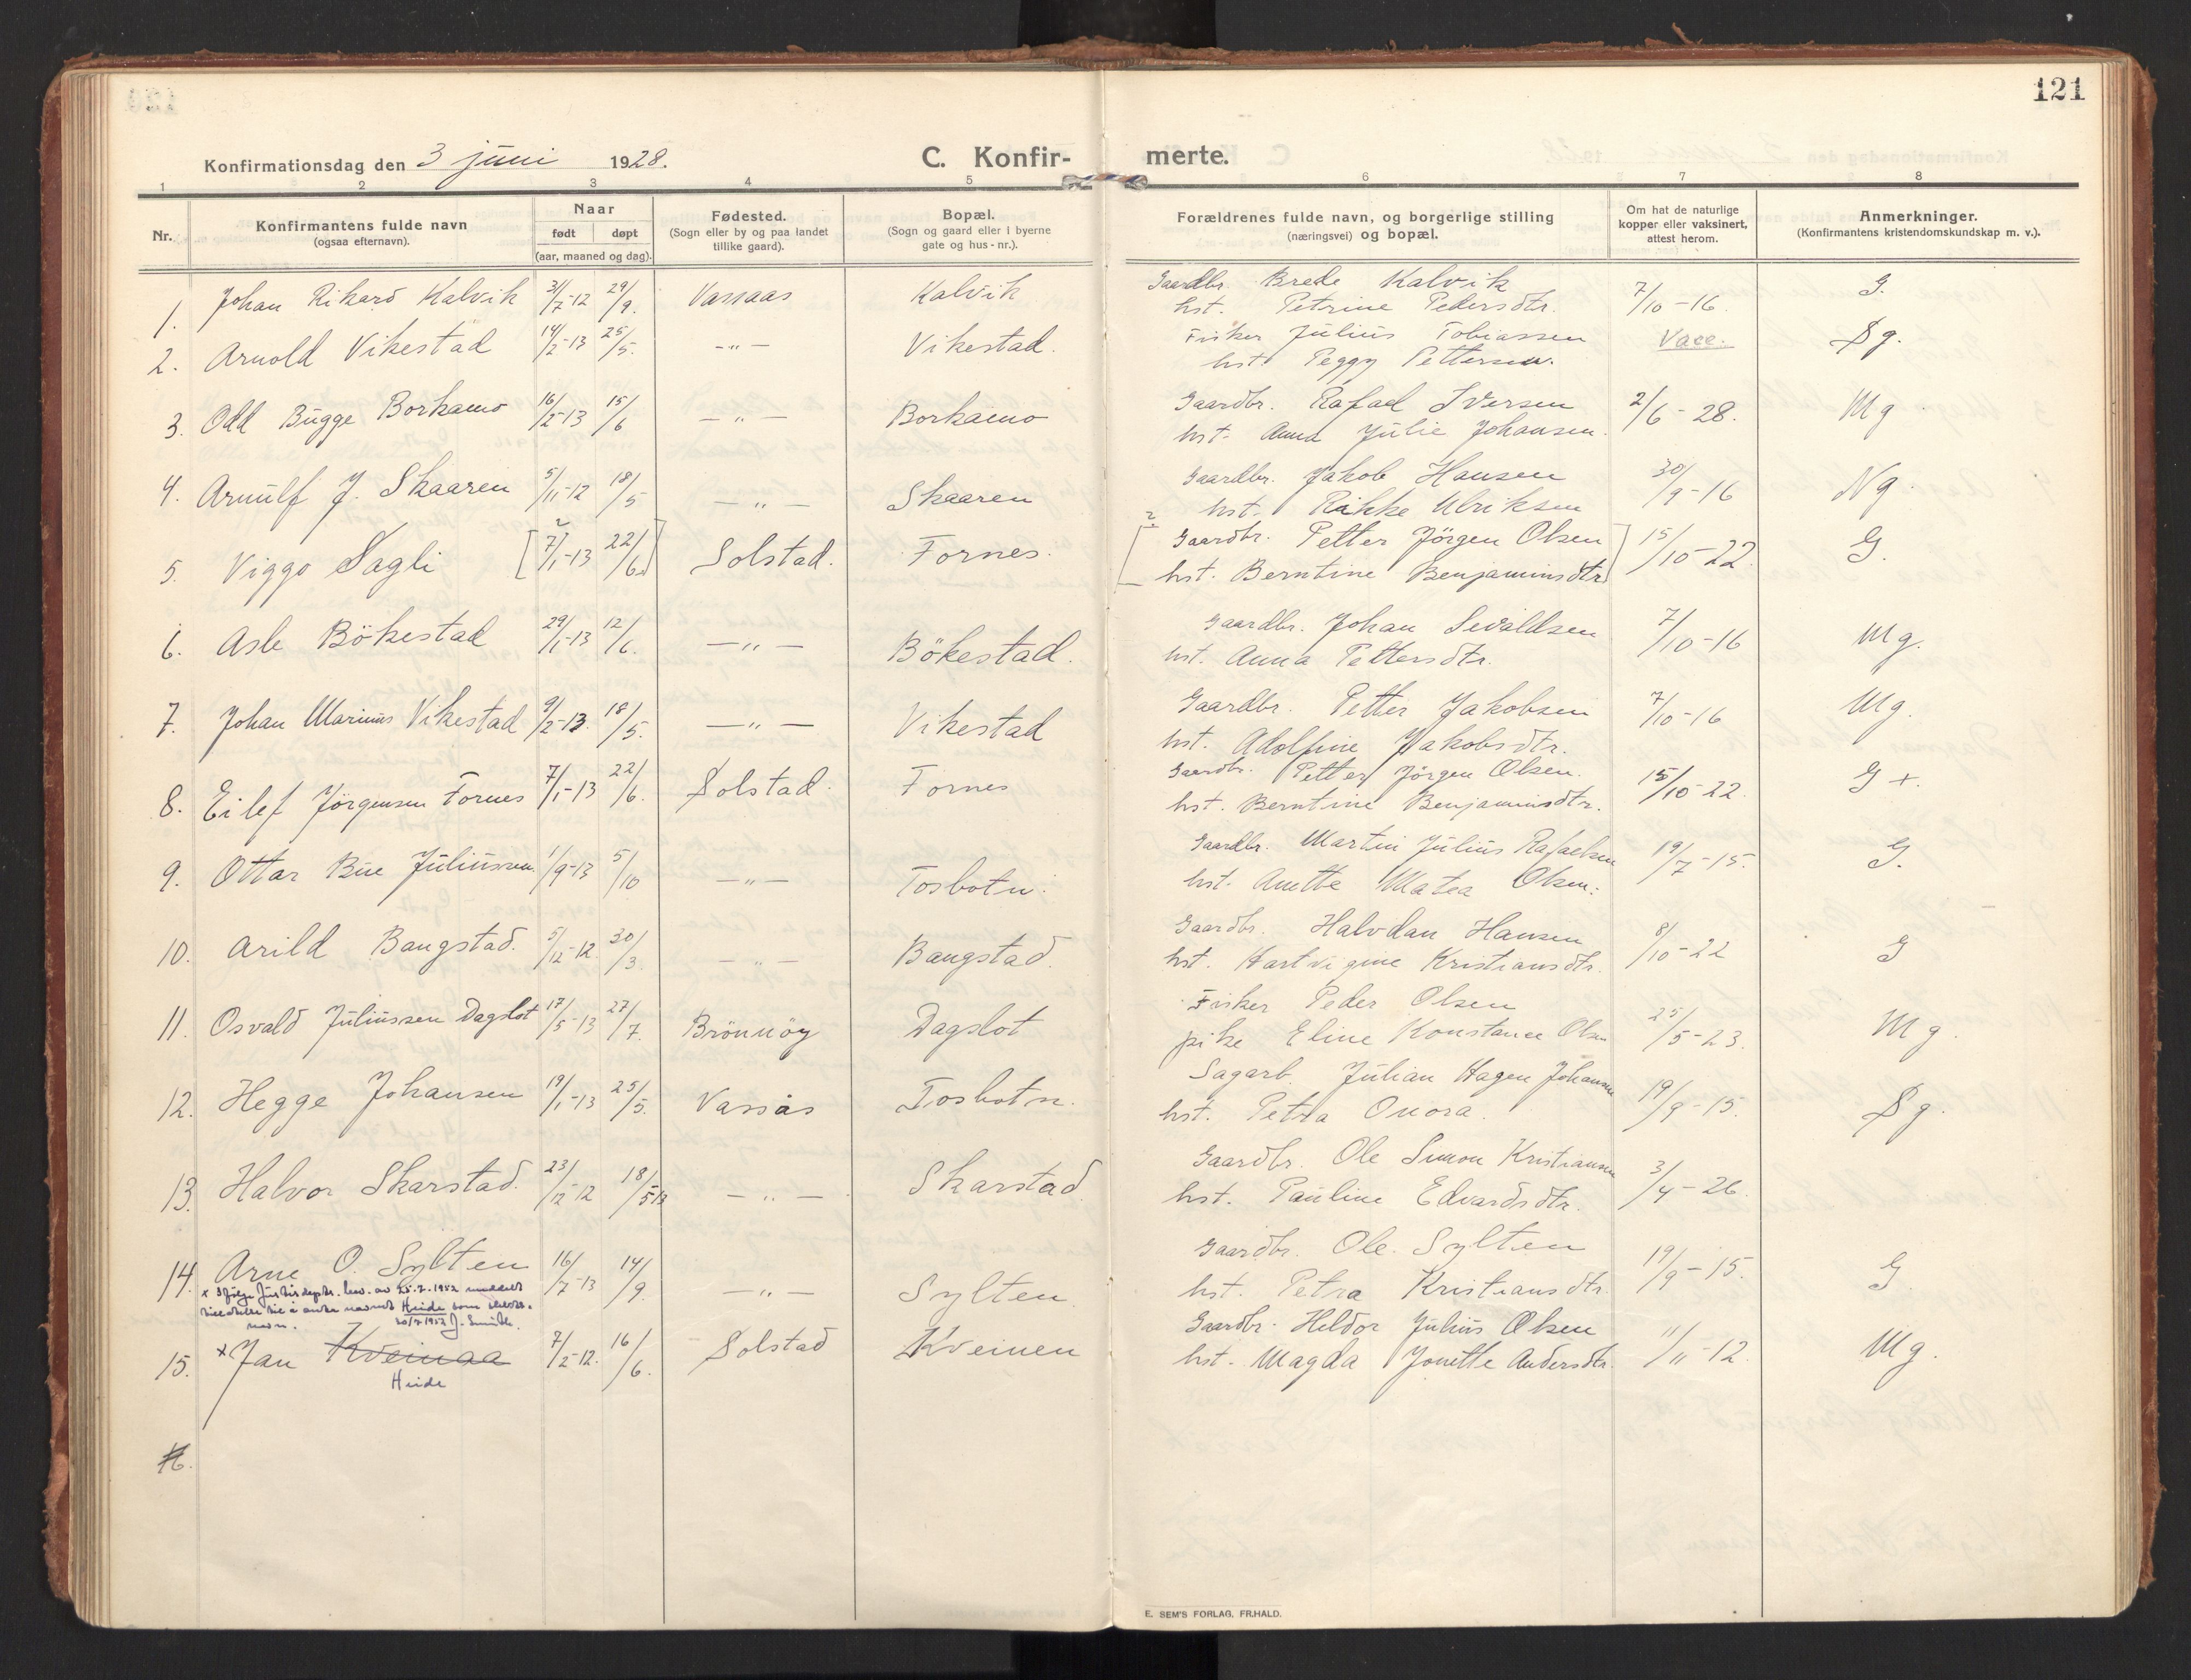 121
Konfirmationsdag den 3 juni 1928.
C. Konfir- merte.
1 2 3 4 5 6 7 8
Nr.
Konfirmantens fulde navn
(ogsaa efternavn).
Naar
født døpt
(aar, maaned og dag).
Fødested.
(Sogn eller by og paa landet
tillike gaard).
Bopæl.
(Sogn og gaard eller i byerne
gate og hus-nr.).
Forældrenes fulde navn, og borgerlige stilling
(næringsvei) og bopæl.
Om hat de naturlige
kopper eller vaksinert,
attest herom.
Anmerkninger.
(Konfirmantens kristendomskundskap m. v.).
1. Johan Rikard Kalvik 31/7-12 29/9. Vassaas Kalvik Gaardbr. Brede Kalvik 7/10-16. G.
hst. Petrine Pedersdtr.
2. Arnold Vikestad 14/2-13 25/5. -"- Vikestad. Fisker Julius Tobiassen Vacc. Sg.
hst. Peggy Pettersen.
3. Odd Bugge Borkamo 16/2-13 15/6 -"- Borkamo Gaardbr. Rafael Iversen 2/6-28. Mg
hst. Anna Julie Johansen.
4. Arnulf J. Skaaren 5/11-12 18/5 -"- Skaaren Gaardbr. Jakob Hansen 30/9-16 Ng.
hst. Rikke Ulriksen
5. Viggo Sagli [7/1-13 22/6.] Solstad. Fornes. ? [Gaardbr. Petter Jörgen Olsen 15/10-22. G.
hst. Berntine Benjaminsdtr.]
6. Asle Bökestad 29/1-13 12/6. -"- Bökestad. Gaardbr. Johan Sevaldsen 7/10-16 Mg.
hst. Anna Pettersdtr.
7. Johan Marius Vikestad 9/2-13. 18/5. -"- Vikestad Gaardbr. Petter Jakobsen 7/10-16 Mg.
hst. Adolfine Jakobsdtr.
8. Eilef Jörgensen Fornes 7/1-13 22/6. Solstad. Fornes Gaardbr. Petter Jörgen Olsen. 15/10-22. G+.
hst. Berntine Benjaminsdtr.
9. Ottar Bue Juliussen 1/9-13 5/10 -"- Tosbotn. Gaardbr. Martin Julius Rafaelsen 19/7-15. G.
hst. Anette Matea Olsen.
10. Arild Bangstad. 5/12-12 30/3. -"- Bangstad. Gaardbr. Halvdan Hansen 8/10-22 G
hst. Hartvigine Kristiansdtr.
11. Osvald Juliussen Dagslot 17/5-13 27/7. Brönnöy Dagslot Fisker Peder Olsen 25/5-23. Mg.
pike Eline Konstance Olsen
12. Hegge Johansen 19/1-13 25/5. Vassås Tosbotn. Sagarb. Julian Hagen Johansen 19/9-15. Sg.
hst. Petra Onora.
13. Halvor Skarstad. 23/12-12 18/5 13 -"- Skarstad Gaardbr. Ole Simon Kristiansen 3/4-26.
hst. Pauline Edvardsdtr.
14. Arne O. Sylten 16/7-13 14/9. -"- Sylten Gaardbr. Ole Sylten 19/9-15. G
hst. Petra Kristiansdtr.
x Ifølge Justisdepts. bev. av 25.7.1952 meddelt
tillatelse til å anta navnet Heide som slekts-
navn. 30/7 1952 J. Smith.
15. x Jan Kveinaa 7/2-12. 16/6. Solstad Kveinen Gaardbr. Heldor Julius Olsen 11/11-12. Mg.
Heide hst. Magda Jonette Andersdtr.
16.
E. SEM'S FORLAG, FR.HALD.